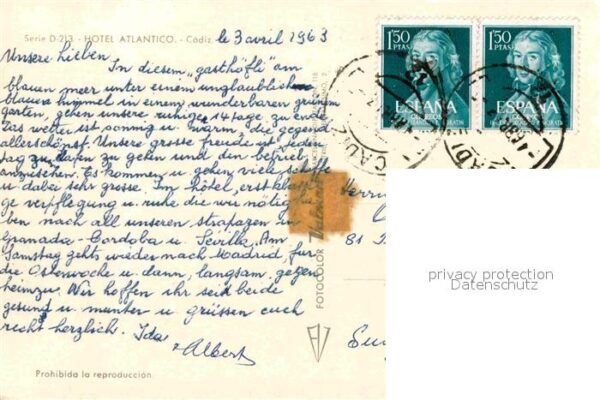 Serie D-213 - HOTEL ATLANTICO. - Cadiz.
le 3 avril 1963
Unsere lieben.
In diesem "gasthöfli" am
blauen meer unter einem unglaublich
blauen himmel in einem wunderbaren grünen
garten, gehen unsere ruhige 14 tage zu ende
Das wetter ist sonnig u. warm, die gegend
allerschönst. Unsere grosse freude ist jeden
tag zu hafen zu gehen und den betrieb
anzusehen. Es kommen u gehen viele schiffe
u dabei sehr grosse. Im hôtel, erstklassi
ge verpflegung u ruhe die wir nötig
ben nach all unseren strapazen in
Granada - Cordoba u. Sevilla. Am
Samstag gehts wieder nach Madrid, für
die Osterwoche u. dann, langsam, gegen
heimzu. Wir hoffen ihr seid beide
gesund u. munter u. grüssen euch
recht herzlich. Ida
+ Albert
Prohibida la reproducción.
FOTOCOLOR
1'50
PTAS
ESPAÑA
CORREOS
1'50
PTAS
ESPAÑA
CORREOS
CADIZ
CADIZ
81
privacy protection
Datenschutz